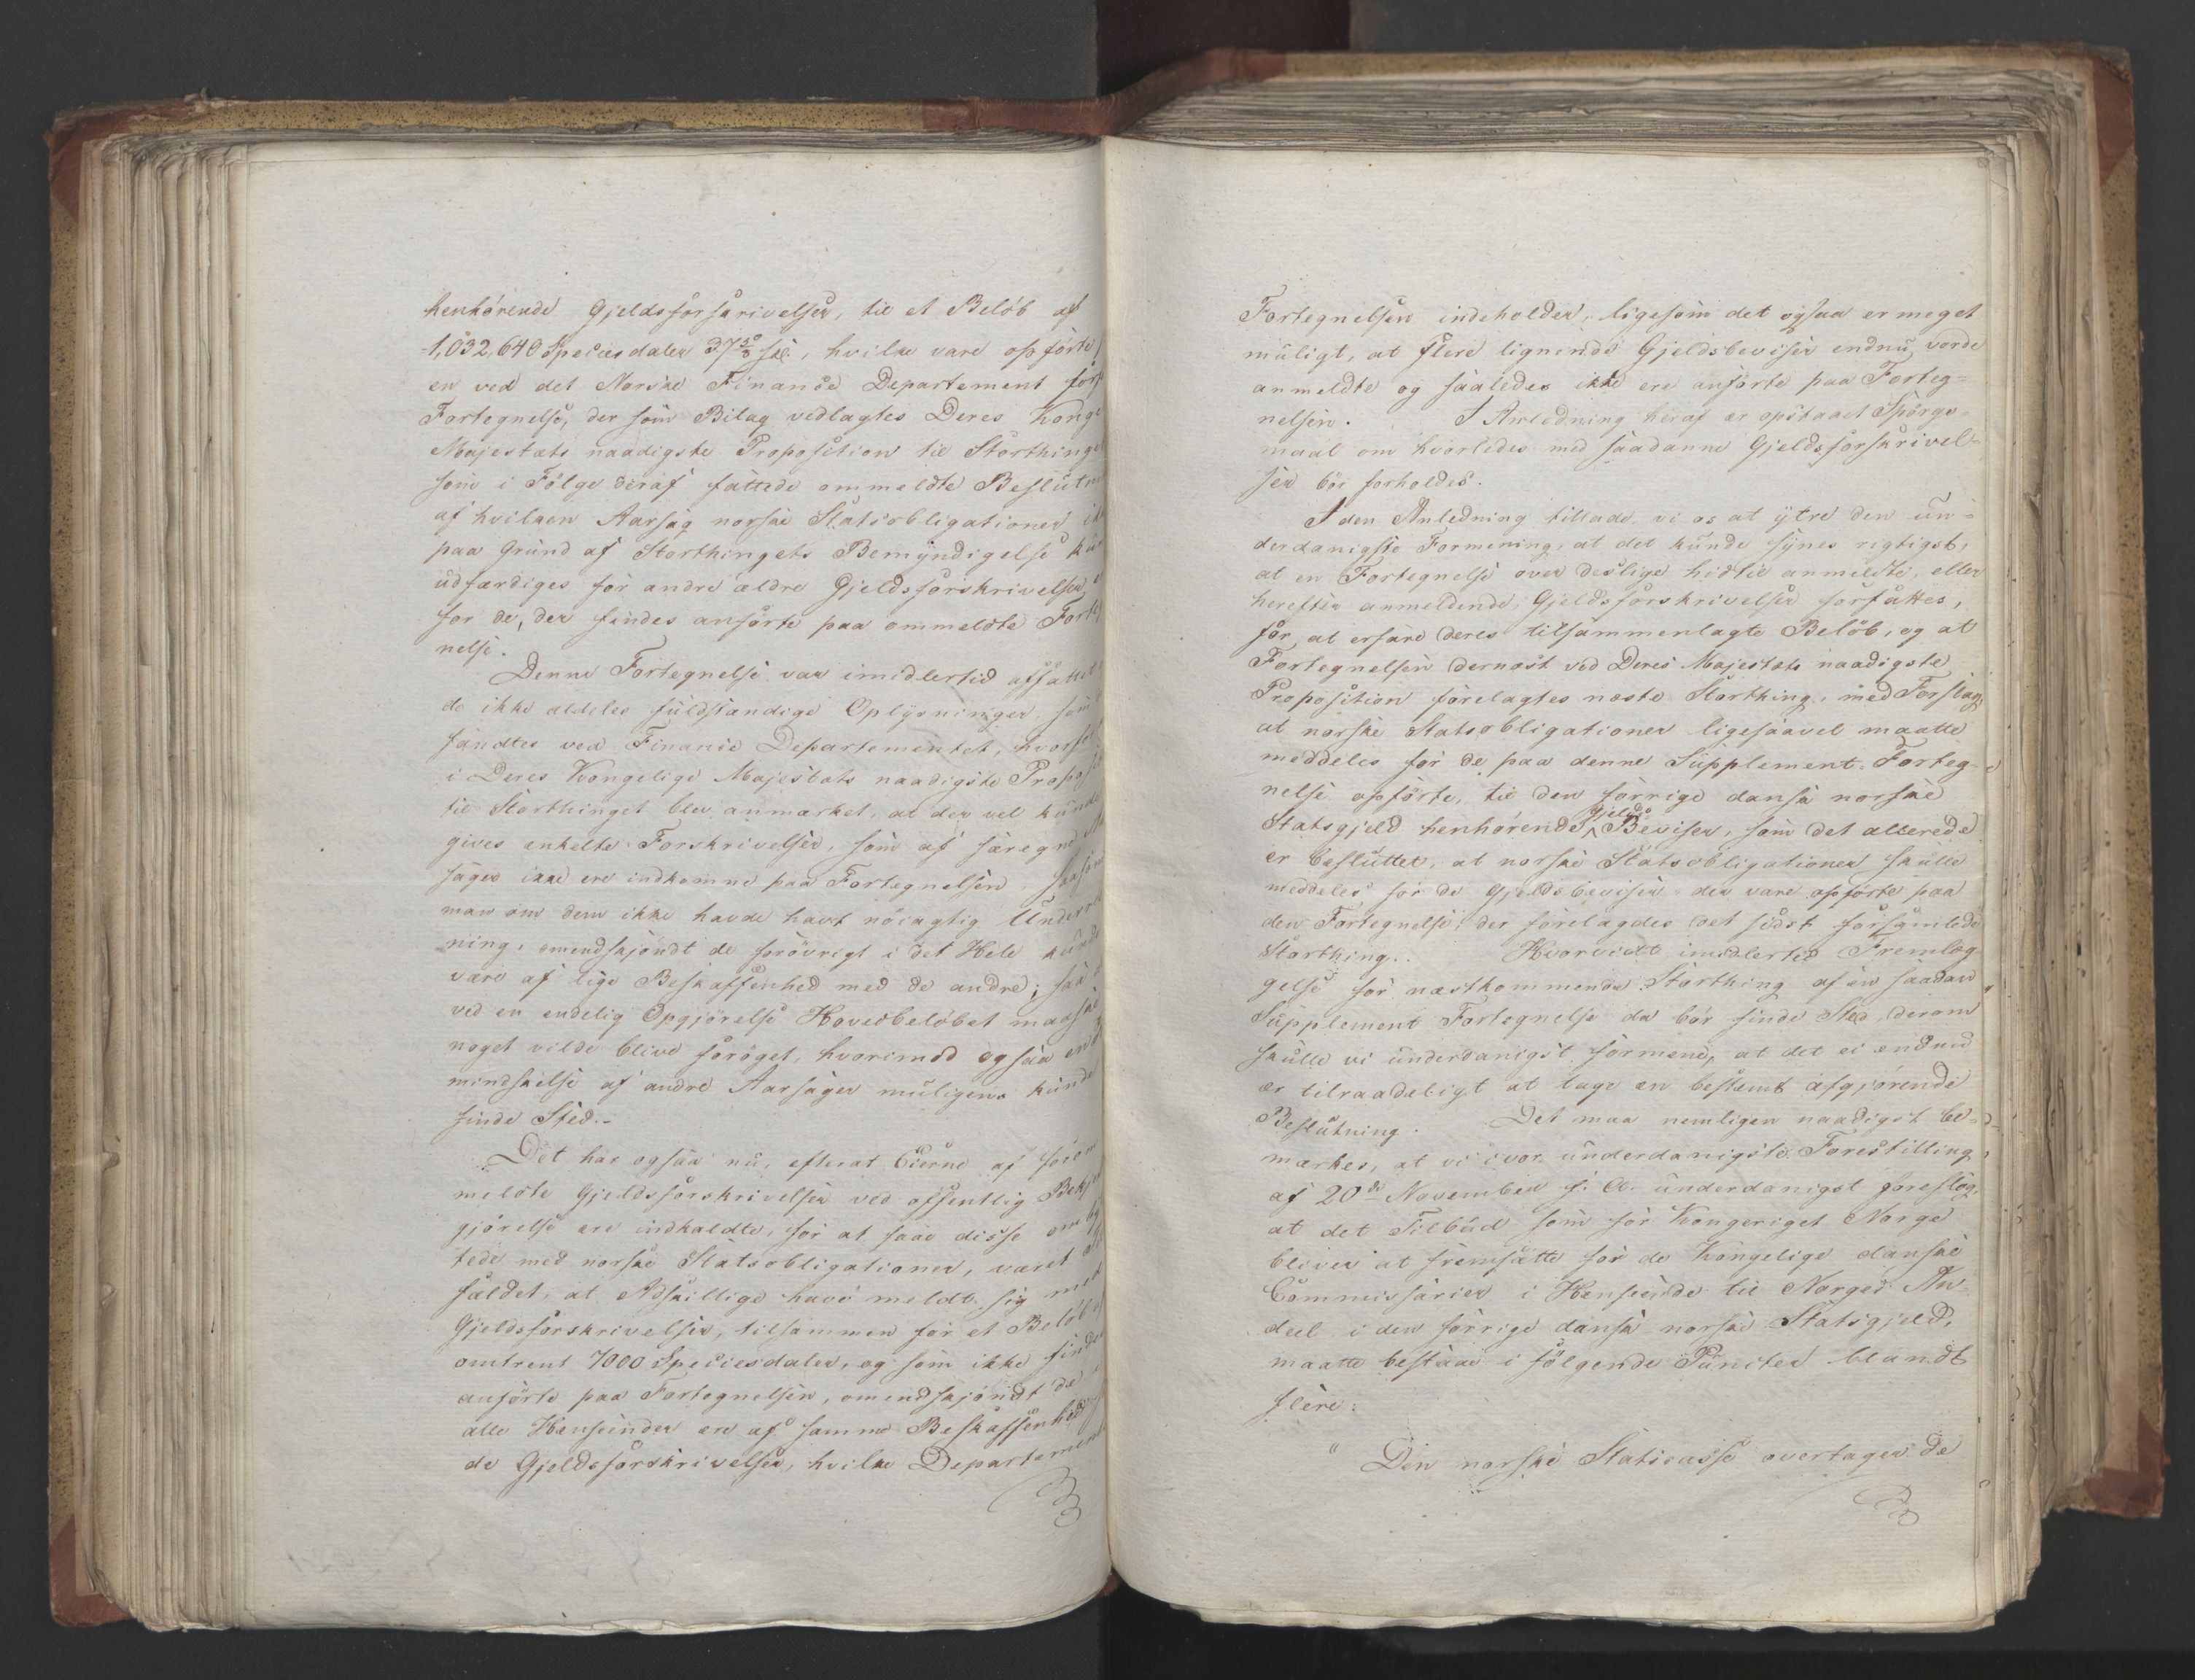 henhörende Gjeldsforskrivelser, til et Belöb af
1,032,640 Speciesdaler 37 sk., hvilke vare opförte
en ved det Norske Finance Departement
Fortegnelse, der som Bilag vedlagtes Deres Konge
Majestæts naadigste Proposition til Storthinge
som i Fölge deraf fattede ommeldte Beslutn
af hvilken Aarsag norske Statsobligationer
paa Grund af Storthingets Bemyndigelse
udfærdiges for andre ældre Gjeldsforskrivelser
for de, der findes anförte paa ommeldte
nelse.
Denne Fortegnelse var imidlertid affattet
de ikke aldeles fuldstændige Oplysninger, som
fandtes ved Finance Departementet, hvorfor
i Deres Kongelige Majestæts naadigste Propo
til Storthinget blev anmærket, at der vel kunde
gives enkelte Forskrivelser, som af særegne
sager ikke ere indkomne paa Fortegnelsen,
man om dem ikke havde havt nöiagtig
ning, omendskjöndt de forövrigt i det Hele kunde
være af lige Beskaffenhed med de andre; saa
ved en endelig Opgjörelse Hovedbelöbet
noget vilde blive foröget, hvorimod ogsaa
mindskelse af andre Aarsager muligens kunde
finde Sted.-
Det har ogsaa nu, efterat Eierne af
meldte Gjeldsforskrivelser ved offentlig
gjörelse ere indkaldte, for at faae disse
tede med norske Statsobligationer, været
fældet, at Adskillige have meldt sig med
Gjeldsforskrivelser, tilsammen for et Belöb
omtrent 7000 Speciesdaler, og som ikke findes
anförte paa Fortegnelsen, omendskjöndt de
alle Henseender ere af samme Beskaffenhed
de Gjeldsforskrivelser, hvilke Departement
Fortegnelsen indeholder, ligesom det ogsaa er meget
muligt, at flere lignende Gjeldsbeviser endnu vorde
anmeldte og saaledes ikke ere anförte paa Forteg-
nelsen. I Anledning heraf er opstaaet Spörgs-
maal om hvorledes med saadanne Gjeldsforskrivel-
ser bör forholdes.
I den Anledning tillade vi os at ytre den un-
derdanigste Formening, at det kunde synes rigtigst,
at en Fortegnelse over deslige hidtil anmeldte, eller
herefter anmeldende Gjeldsforskrivelser forfattes,
for at erfare deres tilsammenlagte Belöb, og at
Fortegnelsen dernæst ved Deres Majestæts naadigste
Proposition forelagtes næste Storthing, med Forslag,
at norske Statsobligationer ligesaavel maatte
meddeles for de paa denne Supplement-Forteg-
nelse opförte, til den forrige dansk norske
Statsgjeld henhörende Gjelds Beviser, som det allerede
er besluttet, at norske Statsobligationer skulle
meddeles for de Gjeldsbeviser der vare opförte paa
den Fortegnelse der forelagdes det sidst forsamlede
Storthing.. Hvorvidt imidlertid Fremlæg-
gelse for næstkommende Storthing af en saadan
Supplement Fortegnelse da bör finde Sted, derom
skulle vi underdanigst formene, at det ei endnu
er tilraadeligt at tage en bestemt afgjörende
Beslutning. Det maa nemligen naadigst be-
mærkes, at vi i vor underdanigste Forestilling
af 20de November f. A. underdanigst foreslog,
at det Tilbud som for Kongeriget Norge
bliver at fremsætte for de Kongelige danske
Commissarier i Henseende til Norges An-
deel i den forrige dansk norske Statsgjeld,
maatte bestaae i fölgende Puncter blandt
flere:
" Den norske Statscasse overtager de